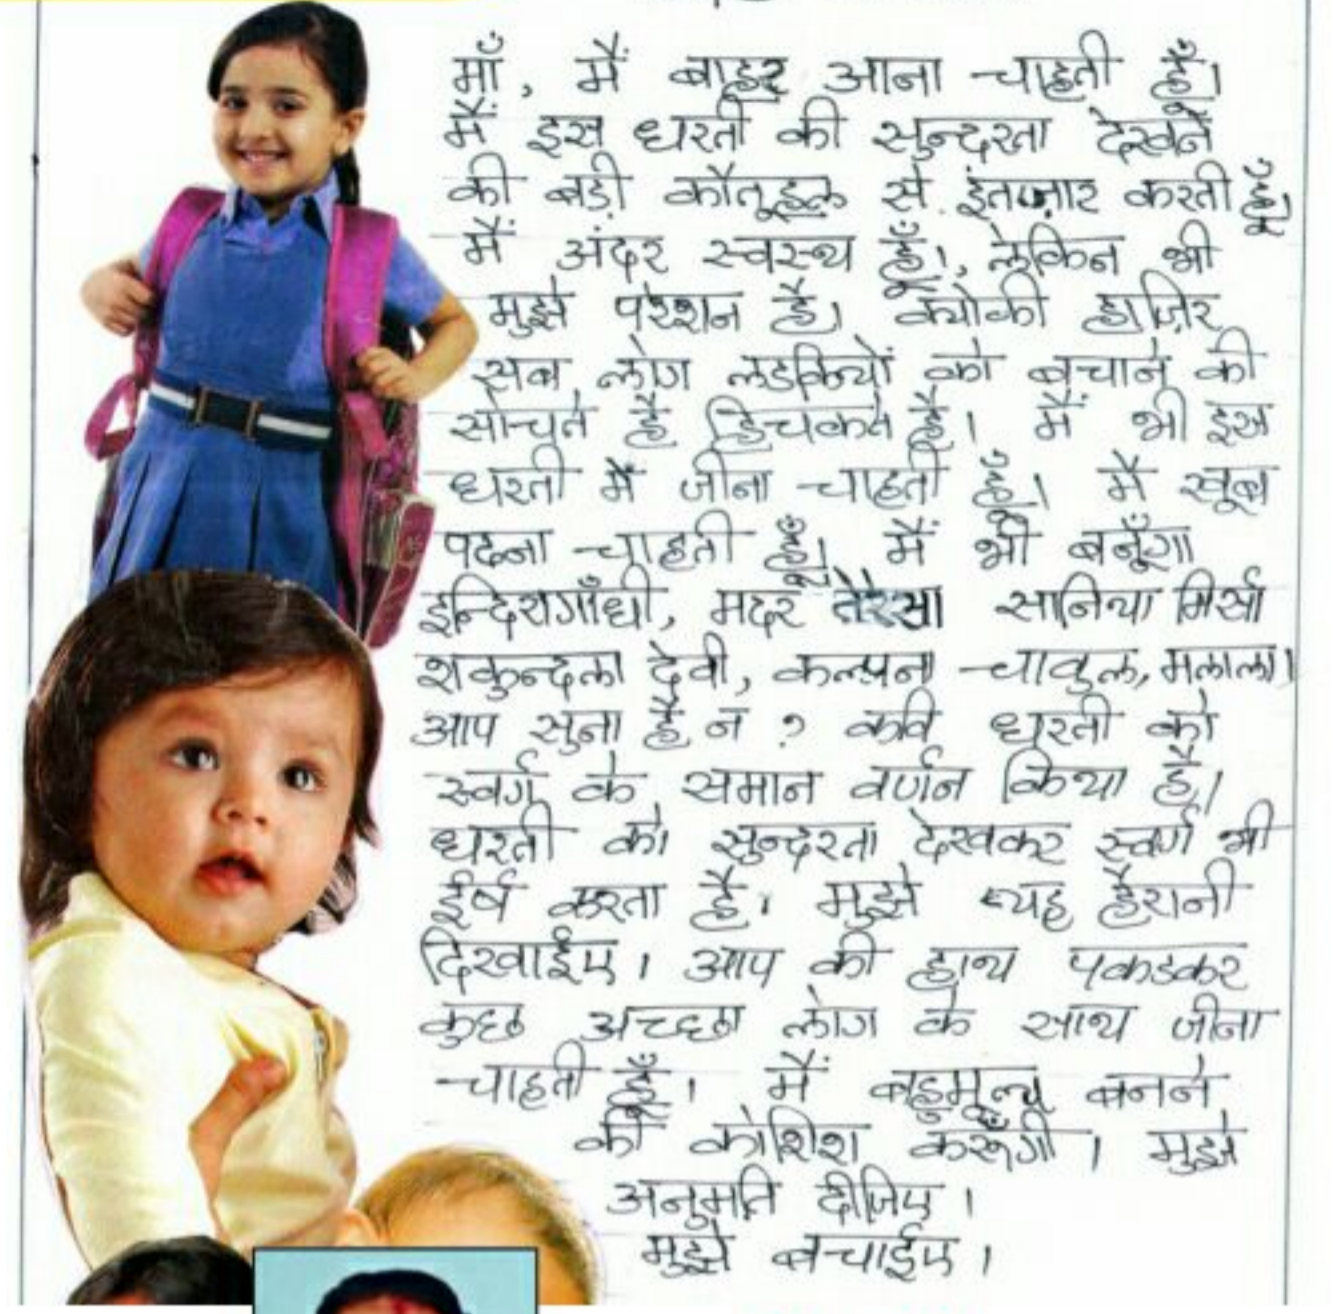 माँ, मैं बाहर आना चाहती हूँ।
मैं इस धरती की सुन्दरता देखने
की बड़ी कौतूहल से इंतज़ार करती हूँ।
मैं अंदर स्वस्थ हूँ।, लेकिन भी
मुझे परेशन है। क्योकी हाज़िर
सब लोग लडकियों को बचाने की
सोचते है हिचकते है। मैं भी इस
धरती मैं जीना चाहती हूँ। मैं खूब
पढना चाहती हूँ। मैं भी बनूँगा
इन्दिरागाँधी, मदर तेरेसा सानिया मिर्सा
शकुन्दला देवी, कल्पना चावुल, मलाला।
आप सुना है न ? कवि धरती को
स्वर्ग के समान वर्णन किया है।
धरती को सुन्दरता देखकर स्वर्ग भी
ईर्ष करता है। मुझे यह हैरानी
दिखाईए। आप की हाथ पकडकर
कुछ अच्छा लोग के साथ जीना
चाहती हूँ। मैं बहुमूल्य बनने
की कोशिश करूँगी। मुझे
अनुमति दीजिए।
मुझे बचाईए।